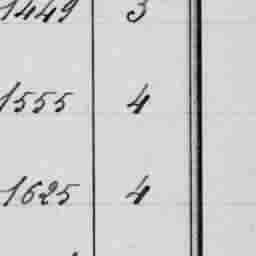 1449 3
1555 4
1625 4